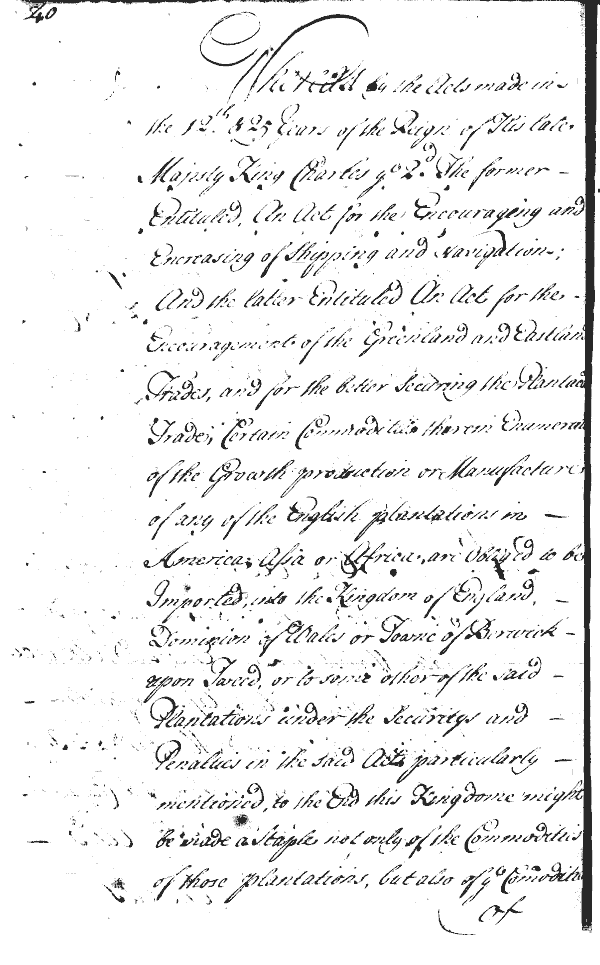 40
Whereas by the Acts made in
the 12th & 25 Years of the Reign of His late
Majesty King Charles ye 2d. The former —
Entituled, An Act for the Encouraging and
Encreasing of Shipping and Navigation;
And the latter Entituled An Act for the -
Encouragement of the Greenland and Eastland
Trades, and for the better Securing the Plantac
Trade, Certain Commodities therein Enumerat
of the Growth production or Manufacture
of any of the English plantations in —
America, Asia or Africa, are Obliged to be
Imported, into the Kingdom of England, —
Dominion of Wales or Towne of Berwick -
upon Tweed, or to some other of the said —
Plantations under the Securitys and —
Penalties in the said Acts particularly —
mentioned, to the End this Kingdome might
be made a Staple not only of the Commodities
of those plantations, but also of ye Comodities
of